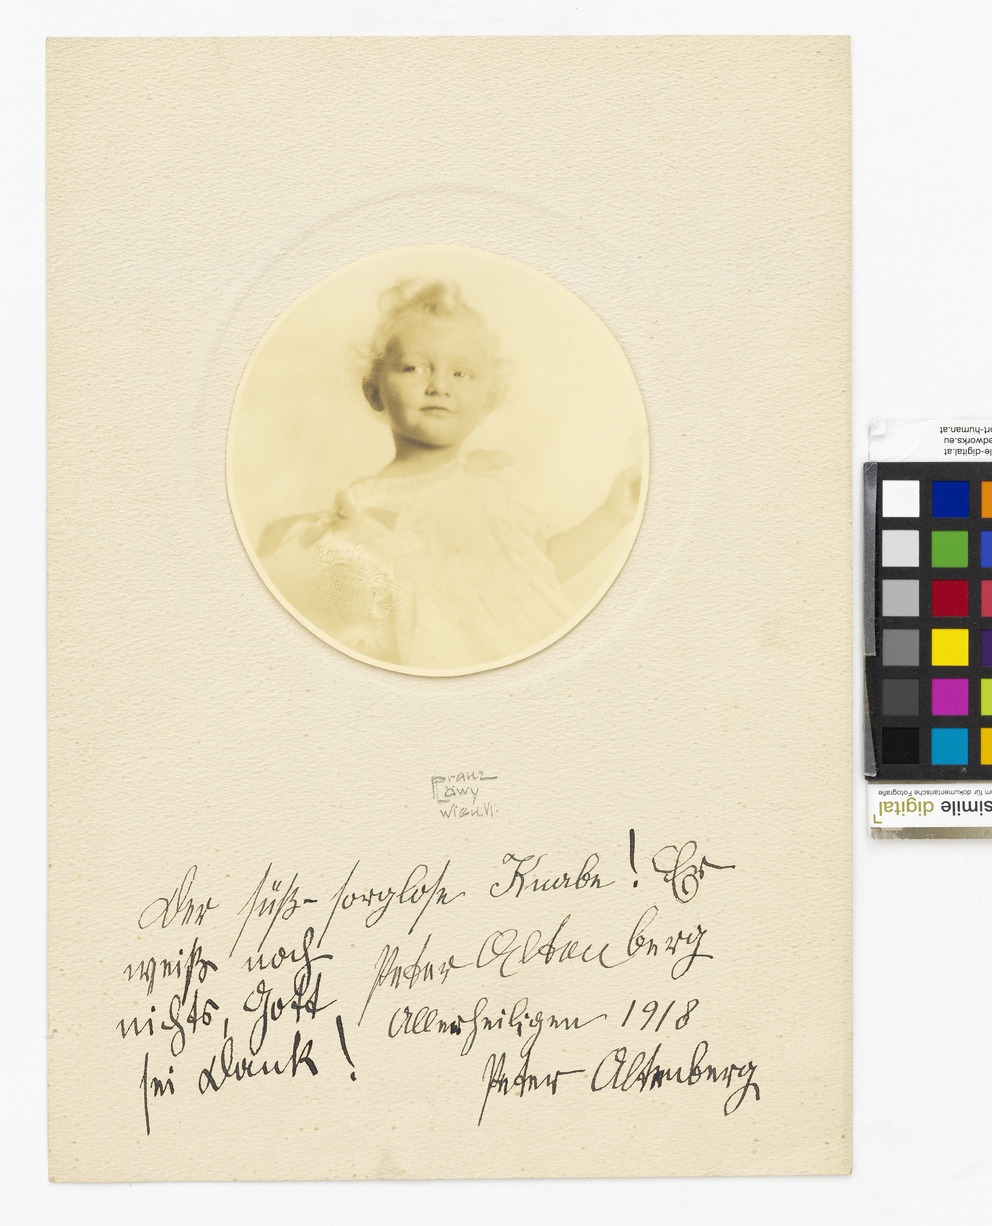 Franz
Löwy
Wien I.
Der süß-sorglose Knabe! Er
weiß noch
nichts, Gott
sei Dank!
Peter Altenberg
Allerheiligen 1918
Peter Altenberg
ort-human.at
adworks.eu
le-digital.at
m für dokumentarische Fotografie
simile digital